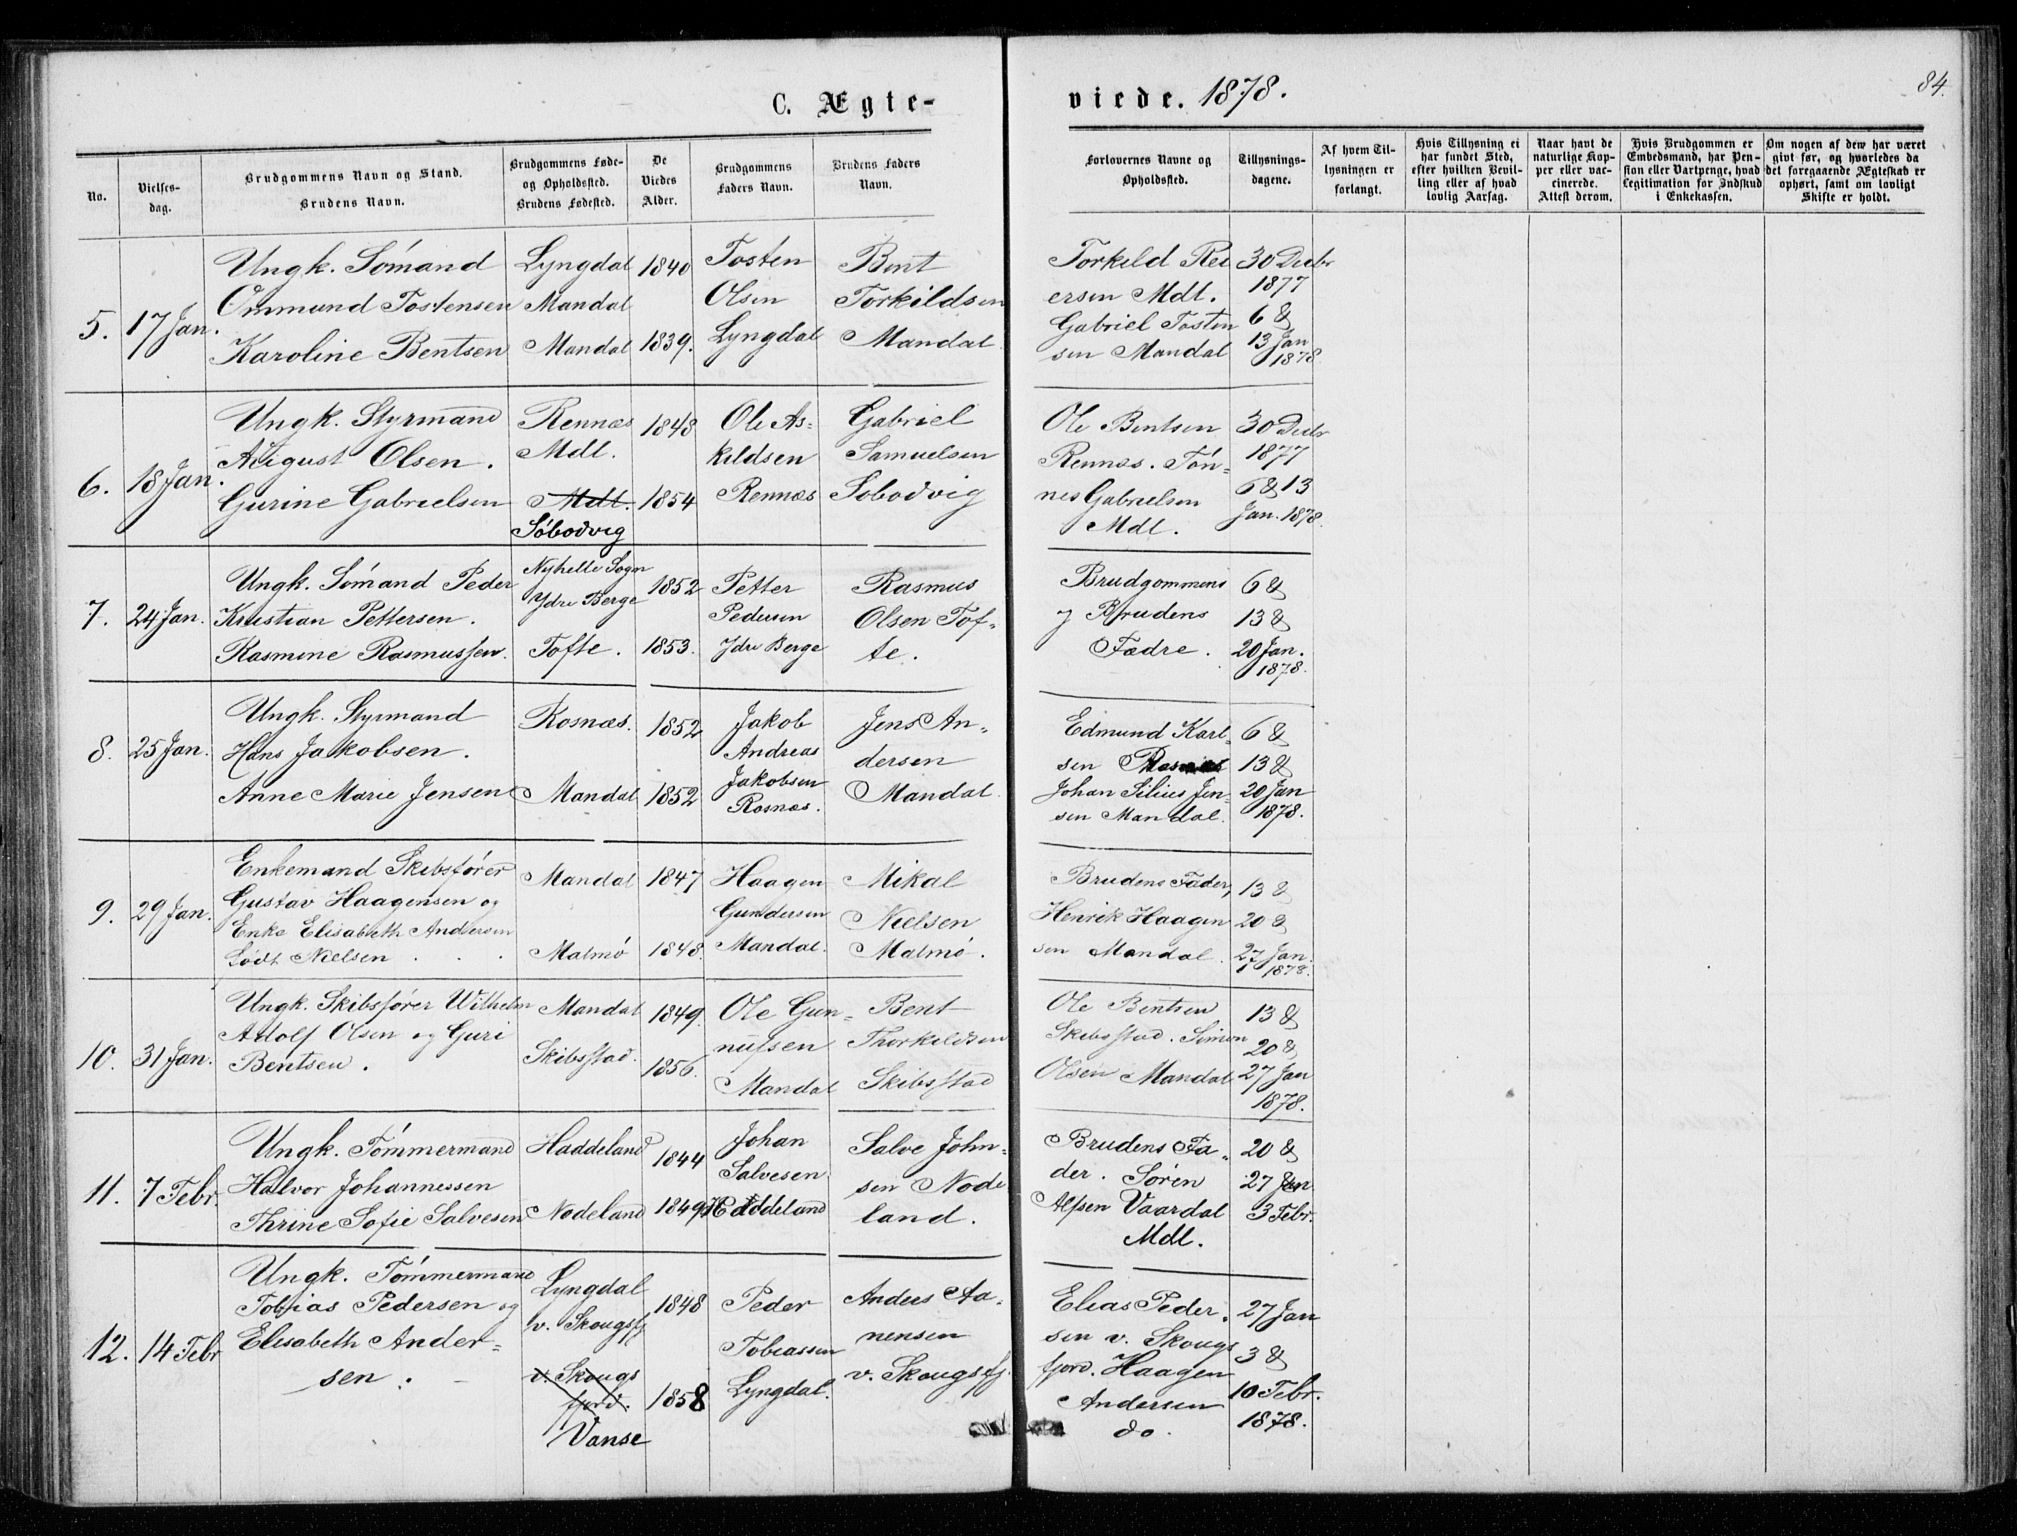 C. Ægte-
viede. 1878.
84.
No.
Vielses-
dag.
Brudgommens Navn og Stand.
Brudens Navn.
Brudgommens Føde-
og Opholdssted.
Brudens Fødested.
De
Viedes
Alder.
Brudgommens
Faders Navn.
Brudens Faders
Navn.
Forlovernes Navne og
Opholdssted.
Tillysnings-
dagene.
Af hvem Til-
lysningen er
forlangt.
Hvis Tillysning ei
har fundet Sted,
efter hvilken Bevil-
ling eller af hvad
lovlig Aarsag.
Naar havt de
naturlige Kop-
per eller vac-
cinerede.
Attest derom.
Hvis Brudgommen er
Embedsmand, har Pen-
sion eller Vartpenge, hvad
Legitimation for Indskud
i Enkekassen.
Om nogen af dem har været
givt før, og hvorledes da
det foregaaende Ægteskab er
ophørt, samt om lovligt
Skifte er holdt.
5.
17 Jan.
Ungk. Sómand
Ommund Tostensen
Karoline Bentsen
Lyngdal
Mandal
Mandal
1840
1839.
Tosten
Olsen
Lyngdal
Bent
Torkildsen
Mandal
Torkild Rei
ersen Mdl.
Gabriel Tosten
sen Mandal
30 Decbr
1877
6 &
13 Jan
1878.
6.
18 Jan.
Ungk. Styrmand
August Olsen.
Gurine Gabrielsen
Rennæs
Mdl.
Mdl.
Söbodvig
1848
1854
Ole As=
kildsen
Rennæs
Gabriel
Samuelsen
Sobodvig
Ole Bentsen
Rennæs. Tón=
nes Gabrielsen
Mdl.
30 Decbr
1877
6 & 13
Jan. 1878.
7.
24 Jan.
Ungk. Sómand Peder
Kristian Pettersen.
Rasmine Rasmussen.
Nyhelle Sogn
Ydre Berge
Tofte.
1852
1853.
Petter
Pedersen
Ydre Berge
Rasmus
Olsen Tof=
te.
Brudgommens
& Brudens
Fædre.
6 &
13 &
20 Jan.
1878.
8.
25 Jan.
Ungk. Styrmand
Hans Jakobsen.
Anne Marie Jensen
Rosnæs.
Mandal
1852
1852
Jakob
Andreas
Jakobsen
Rosnæs.
Jens An=
dersen
Mandal
Edmund Karl=
sen Rosnæs
Johan Silius Jen=
sen Mandal.
6 &
13 &
20 Jan
1878.
9.
29 Jan.
Enkemand Skibsfører
Gustav Haagensen og
Enke Elisabeth Andersen
Født Nielsen . . .
Mandal
Malmø
1847
1848.
Haagen
Gundersen
Mandal.
Mikal
Nielsen
Malmø.
Brudens Fader,
Henrik Haagen
sen Mandal.
13 &
20 &
27 Jan.
1878.
10.
31 Jan.
Ungk. Skibsfører Wilhelm
Adolf Olsen og Guri
Bentsen.
Mandal
Skibsstad.
1849.
1856.
Ole Gun=
nufsen
Mandal
Bent
Thorkildsen
Skibsstad
Ole Bentsen
Skibsstad. Simon
Olsen Mandal
13 &
20 &
27 Jan
1878.
11.
7 Febr.
Ungk. Tómmermand
Halvor Johannessen
Thrine Sofie Salvesen
Haddeland
Nodeland
1844
1849
Johan
Salvesen
Haddeland
Salve John=
sen Node
land.
Brudens Fa=
der. Sörén
Alfsen Vaardal
Mdl.
20 &
27 Jan
3 Febr.
12.
14 Febr
Ungk. Tómmermand
Tobias Pedersen og
Elisabeth Ander=
sen.
Lyngdal
v. Skougsfj
v. Skougs
fjord.
Vanse
1848
1858
Peder
Tobiassen
Lyngdal.
Anders Aa=
nensen
v. Skougsfj.
Elias Peder=
sen v. Skougs
fjord. Haagen
Andersen
do.
27 Jan
3 &
10 Febr.
1878.